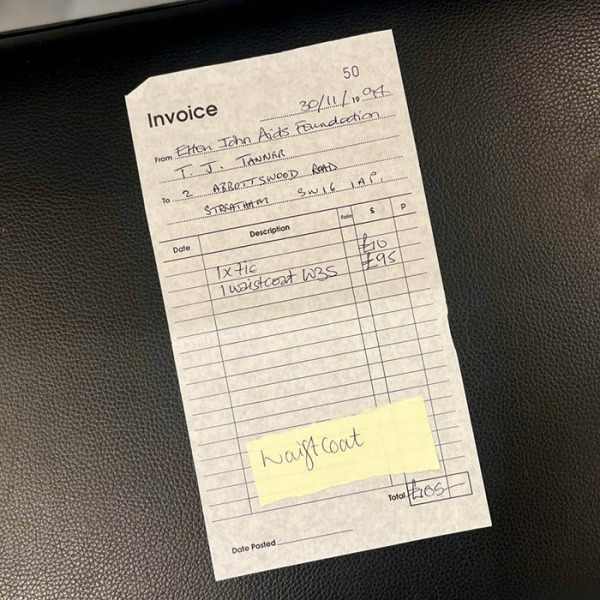 50
Invoice
30/11/1994
From Elton John Aids Foundation
T. J. TANNER
To 2 ABBOTTSWOOD ROAD
STREATHAM SW16 1AP.
Date Description Folio £ P
1 x Tie £10
1 waistcoat W35 £95
waistcoat
Total £105—
Date Posted